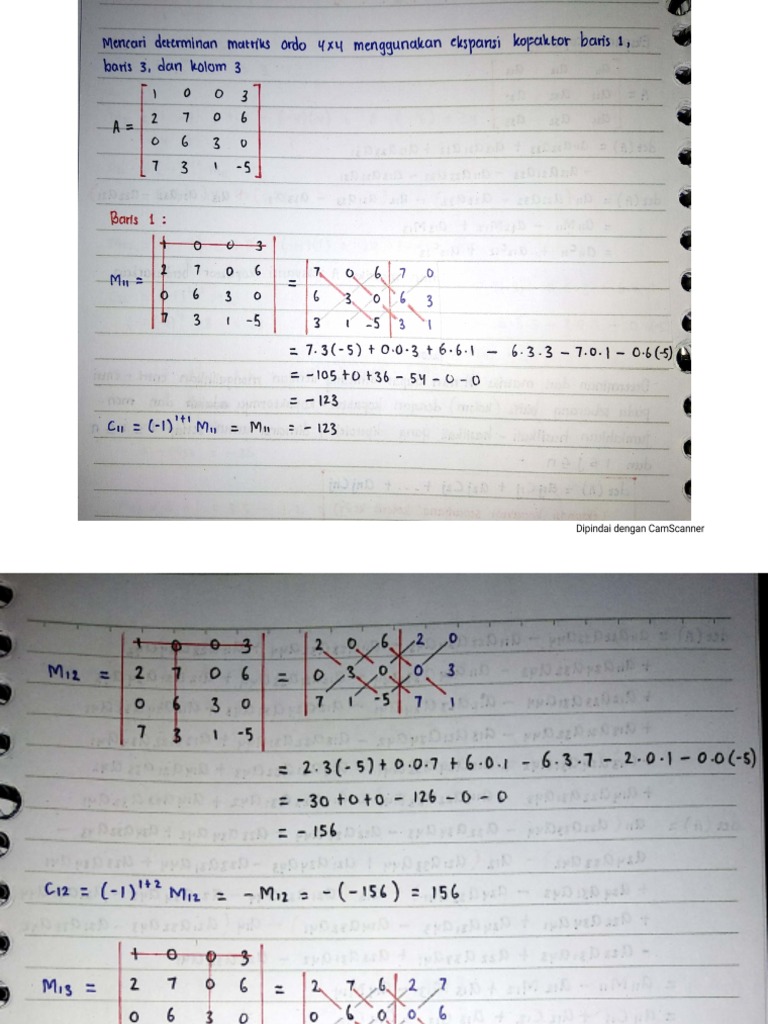 Mencari determinan matriks ordo 4x4 menggunakan ekspansi kofaktor baris 1,
baris 3, dan kolom 3
A = [1 0 0 3
2 7 0 6
0 6 3 0
7 3 1 -5]
Baris 1 :
M11 = |1 0 0 3
2 7 0 6
0 6 3 0
7 3 1 -5| = |7 0 6| 7 0
6 3 0 6 3
3 1 -5| 3 1
= 7.3(-5) + 0.0.3 + 6.6.1 - 6.3.3 - 7.0.1 - 0.6(-5)
= -105 + 0 + 36 - 54 - 0 - 0
= -123
C11 = (-1)^1+1 M11 = M11 = -123
Dipindai dengan CamScanner
M12 = |1 0 0 3
2 7 0 6
0 6 3 0
7 3 1 -5| = |2 0 6| 2 0
0 3 0 0 3
7 1 -5| 7 1
= 2.3(-5) + 0.0.7 + 6.0.1 - 6.3.7 - 2.0.1 - 0.0(-5)
= -30 + 0 + 0 - 126 - 0 - 0
= -156
C12 = (-1)^1+2 M12 = -M12 = -(-156) = 156
M13 = |1 0 0 3
2 7 0 6
0 6 3 0 = |2 7 6| 2 7
0 6 0 0 6